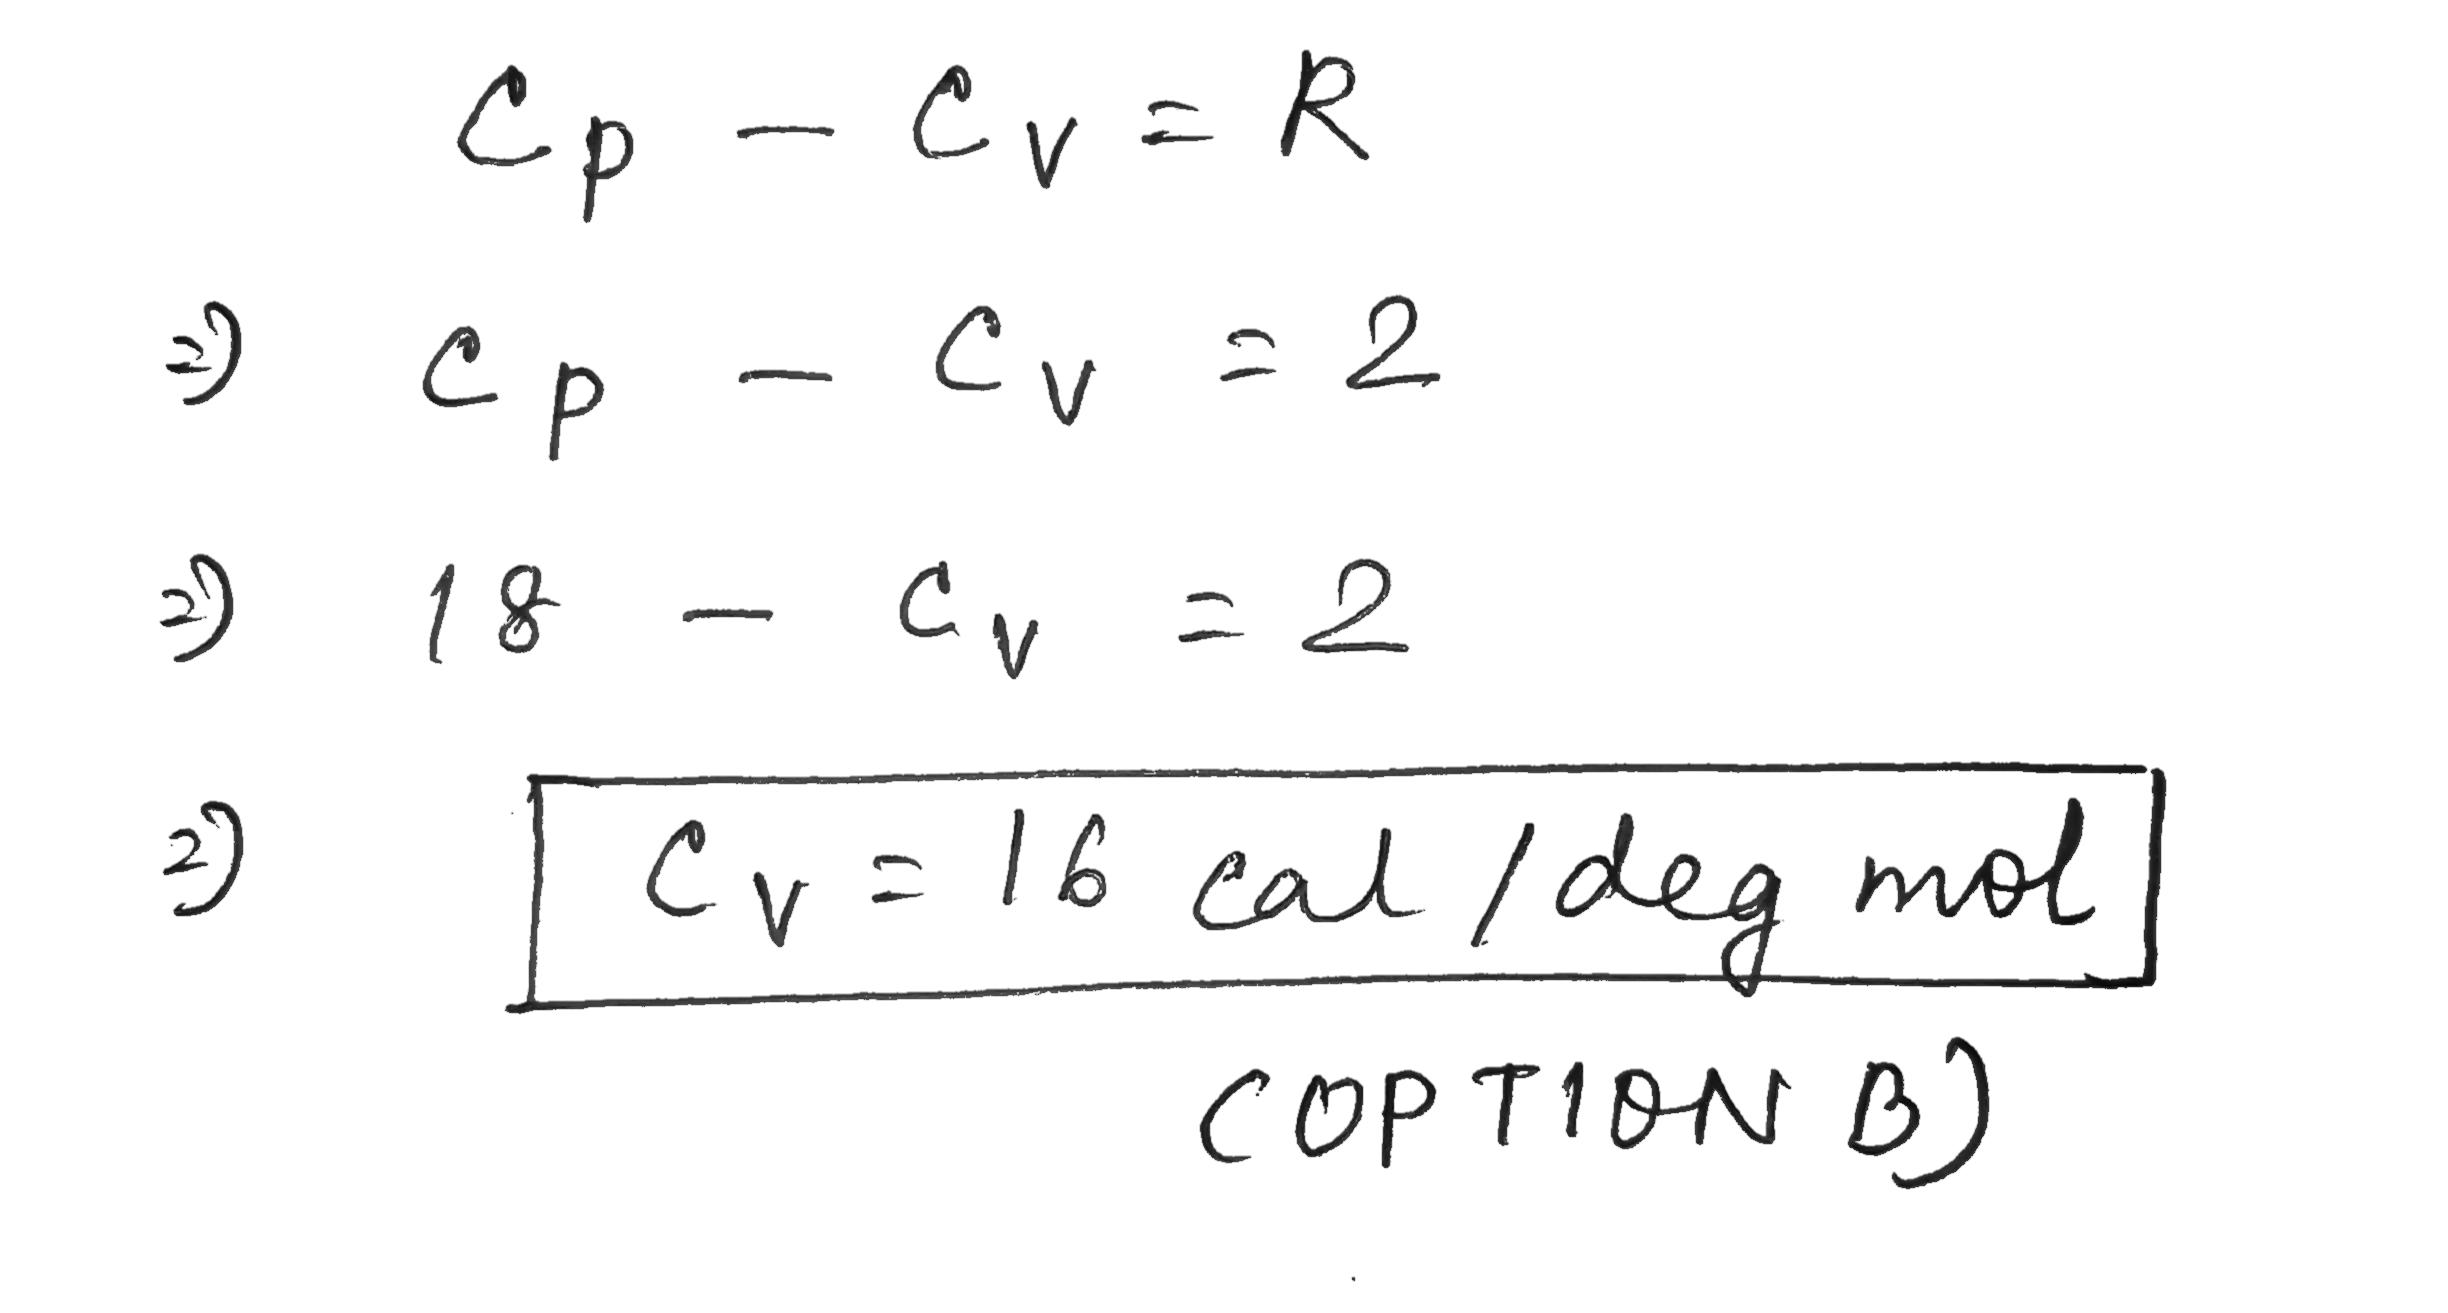 Cp - Cv = R
=> Cp - Cv = 2
=> 18 - Cv = 2
=> Cv = 16 cal / deg mol
(OPTION B)